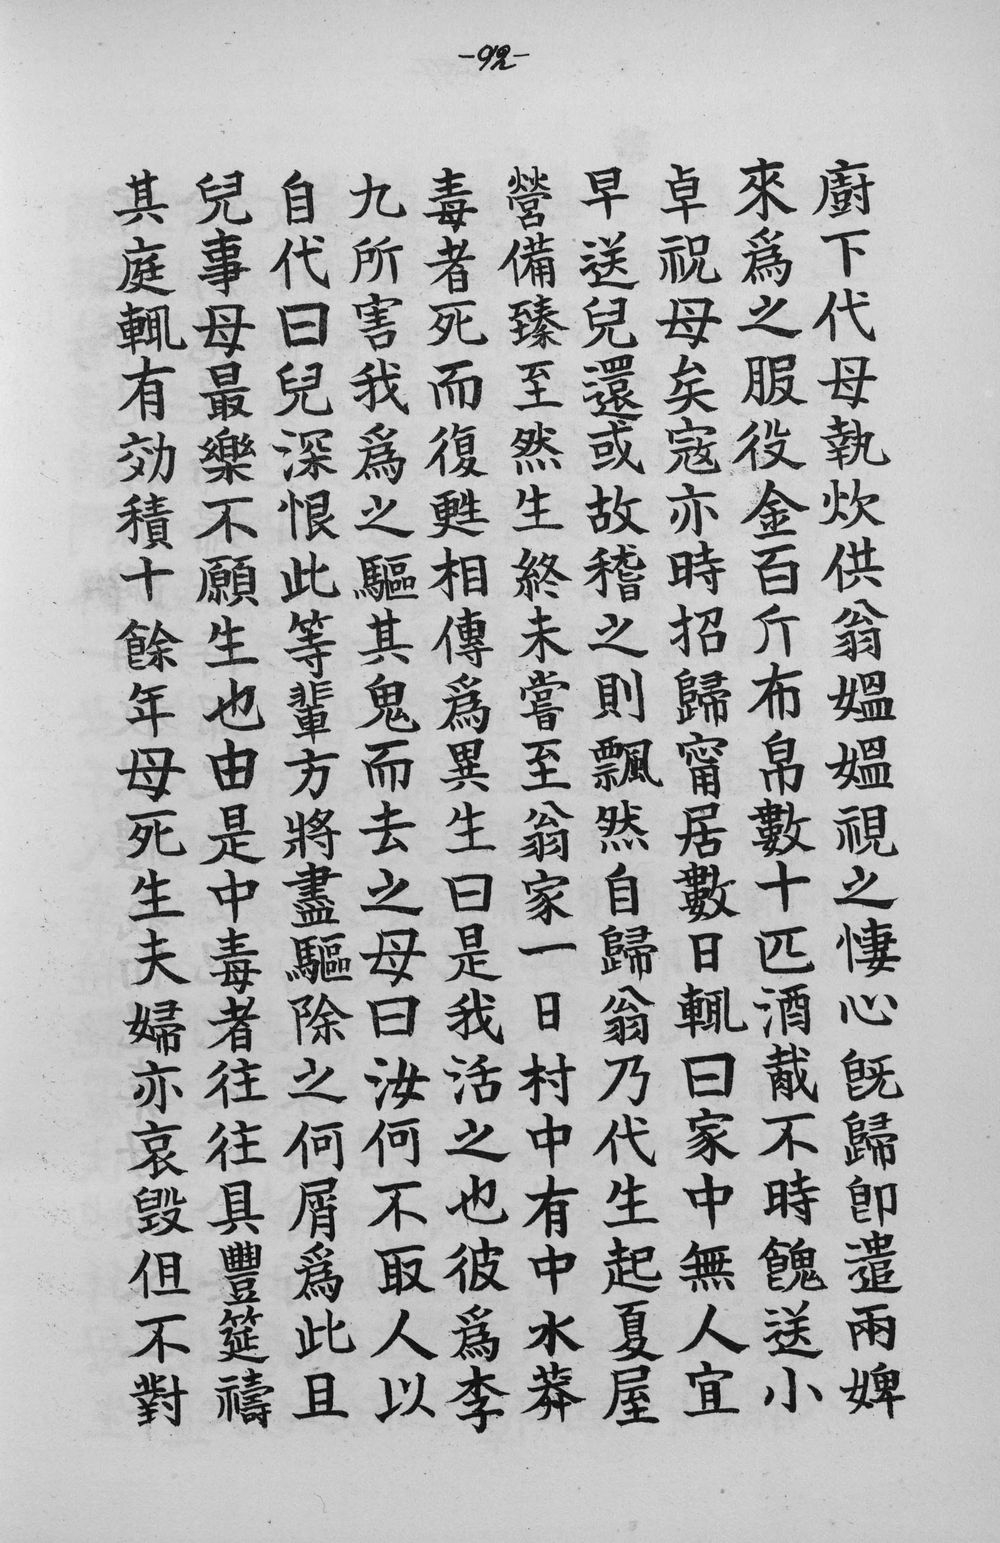 -92-
廚下代母執炊供翁媼媼視之悽心旣歸卽遣兩婢
來爲之服役金百斤布帛數十匹酒胾不時餽送小
卓祝母矣寇亦時招歸甯居數日輒曰家中無人宜
早送兒還或故稽之則飄然自歸翁乃代生起夏屋
營備臻至然生終未嘗至翁家一日村中有中水莽
毒者死而復甦相傳爲異生曰是我活之也彼爲李
九所害我爲之驅其鬼而去之母曰汝何不取人以
自代曰兒深恨此等輩方將盡驅除之何屑爲此且
兒事母最樂不願生也由是中毒者往往具豐筵禱
其庭輒有効積十餘年母死生夫婦亦哀毀但不對